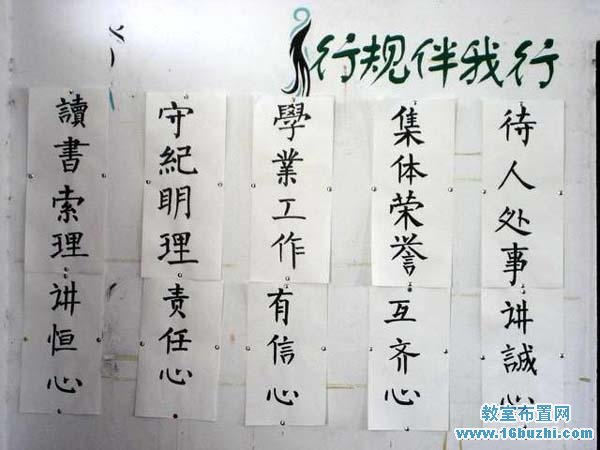 行规伴我行
待人处事讲誠心
集体荣誉互齐心
學業工作有信心
守紀明理责任心
讀書索理讲恒心
教室布置网
www.16buzhi.com